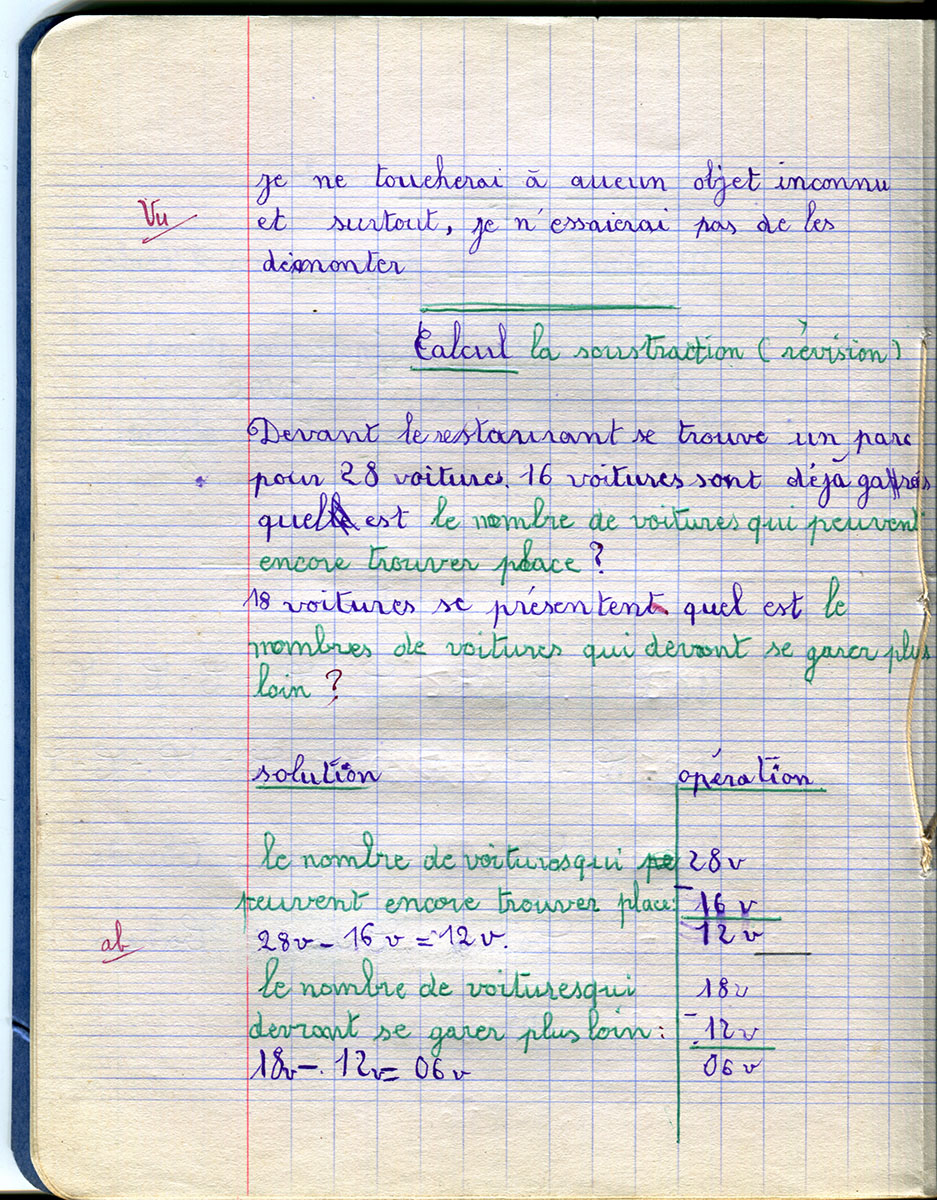 je ne toucherai à aucun objet inconnu
Vu
et surtout, je n'essaierai pas de les
démonter
Calcul la soustraction (révision)
Devant le restaurant se trouve un parc
pour 28 voitures. 16 voitures sont déjà
quel est le nombre de voitures qui peuvent
encore trouver place ?
18 voitures se présentent. quel est le
nombres de voitures qui devront se garer plus
loin ?
solution
opération
le nombre de voitures qui pe
28v
peuvent encore trouver place:
- 16 v
28v - 16 v = 12 v.
12 v
ab
le nombre de voitures qui
18v
devront se garer plus loin :
- 12v
18v - 12v = 06v
06 v